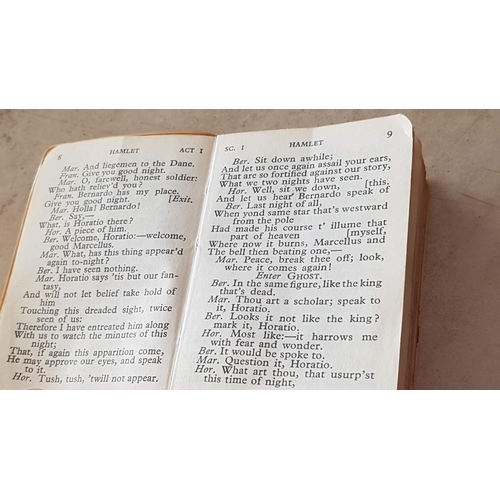 8 HAMLET ACT I
Mar. And liegemen to the Dane.
Fran. Give you good night.
Mar. O, farewell, honest soldier:
Who hath reliev'd you?
Fran. Bernardo has my place.
Give you good night. [Exit.
Mar. Holla! Bernardo!
Ber. Say,—
What, is Horatio there?
Hor. A piece of him.
Ber. Welcome, Horatio:—welcome,
good Marcellus.
Mar. What, has this thing appear'd
again to-night?
Ber. I have seen nothing.
Mar. Horatio says 'tis but our fan-
tasy,
And will not let belief take hold of
him
Touching this dreaded sight, twice
seen of us:
Therefore I have entreated him along
With us to watch the minutes of this
night;
That, if again this apparition come,
He may approve our eyes, and speak
to it.
Hor. Tush, tush, 'twill not appear.
SC. I HAMLET 9
Ber. Sit down awhile;
And let us once again assail your ears,
That are so fortified against our story,
What we two nights have seen.
Hor. Well, sit we down, [this.
And let us hear Bernardo speak of
Ber. Last night of all,
When yond same star that's westward
from the pole
Had made his course t' illume that
part of heaven [myself,
Where now it burns, Marcellus and
The bell then beating one,—
Mar. Peace, break thee off; look,
where it comes again!
Enter GHOST.
Ber. In the same figure, like the king
that's dead.
Mar. Thou art a scholar; speak to
it, Horatio.
Ber. Looks it not like the king?
mark it, Horatio.
Hor. Most like:—it harrows me
with fear and wonder.
Ber. It would be spoke to.
Mar. Question it, Horatio.
Hor. What art thou, that usurp'st
this time of night,